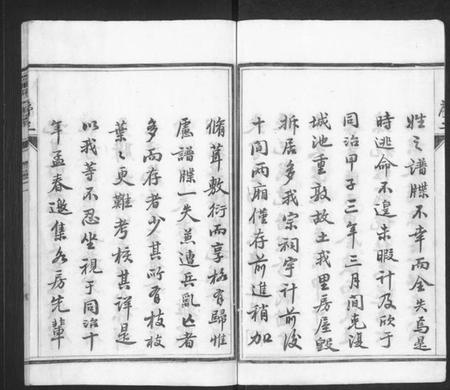 姓之譜牒不幸而全失焉是
時逃命不遑未暇計及欣于
同治甲子三年三月间克復
城池重敦故土我里房屋毁
拆居多我宗祠宇计前後
十间两廂僅存前進稍加
脩葺数衍而享格有歸惟
慮譜牒一失蔥遭兵亂亡者
多而存者少其所有枝枝
葉々更難考核其詳是
以我等不忍坐視于同治十
年孟春邀集各房先輩